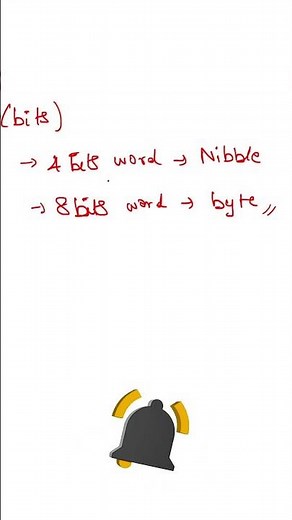 (bits)
→ 4 bits word → Nibble
→ 8 bits word → byte //